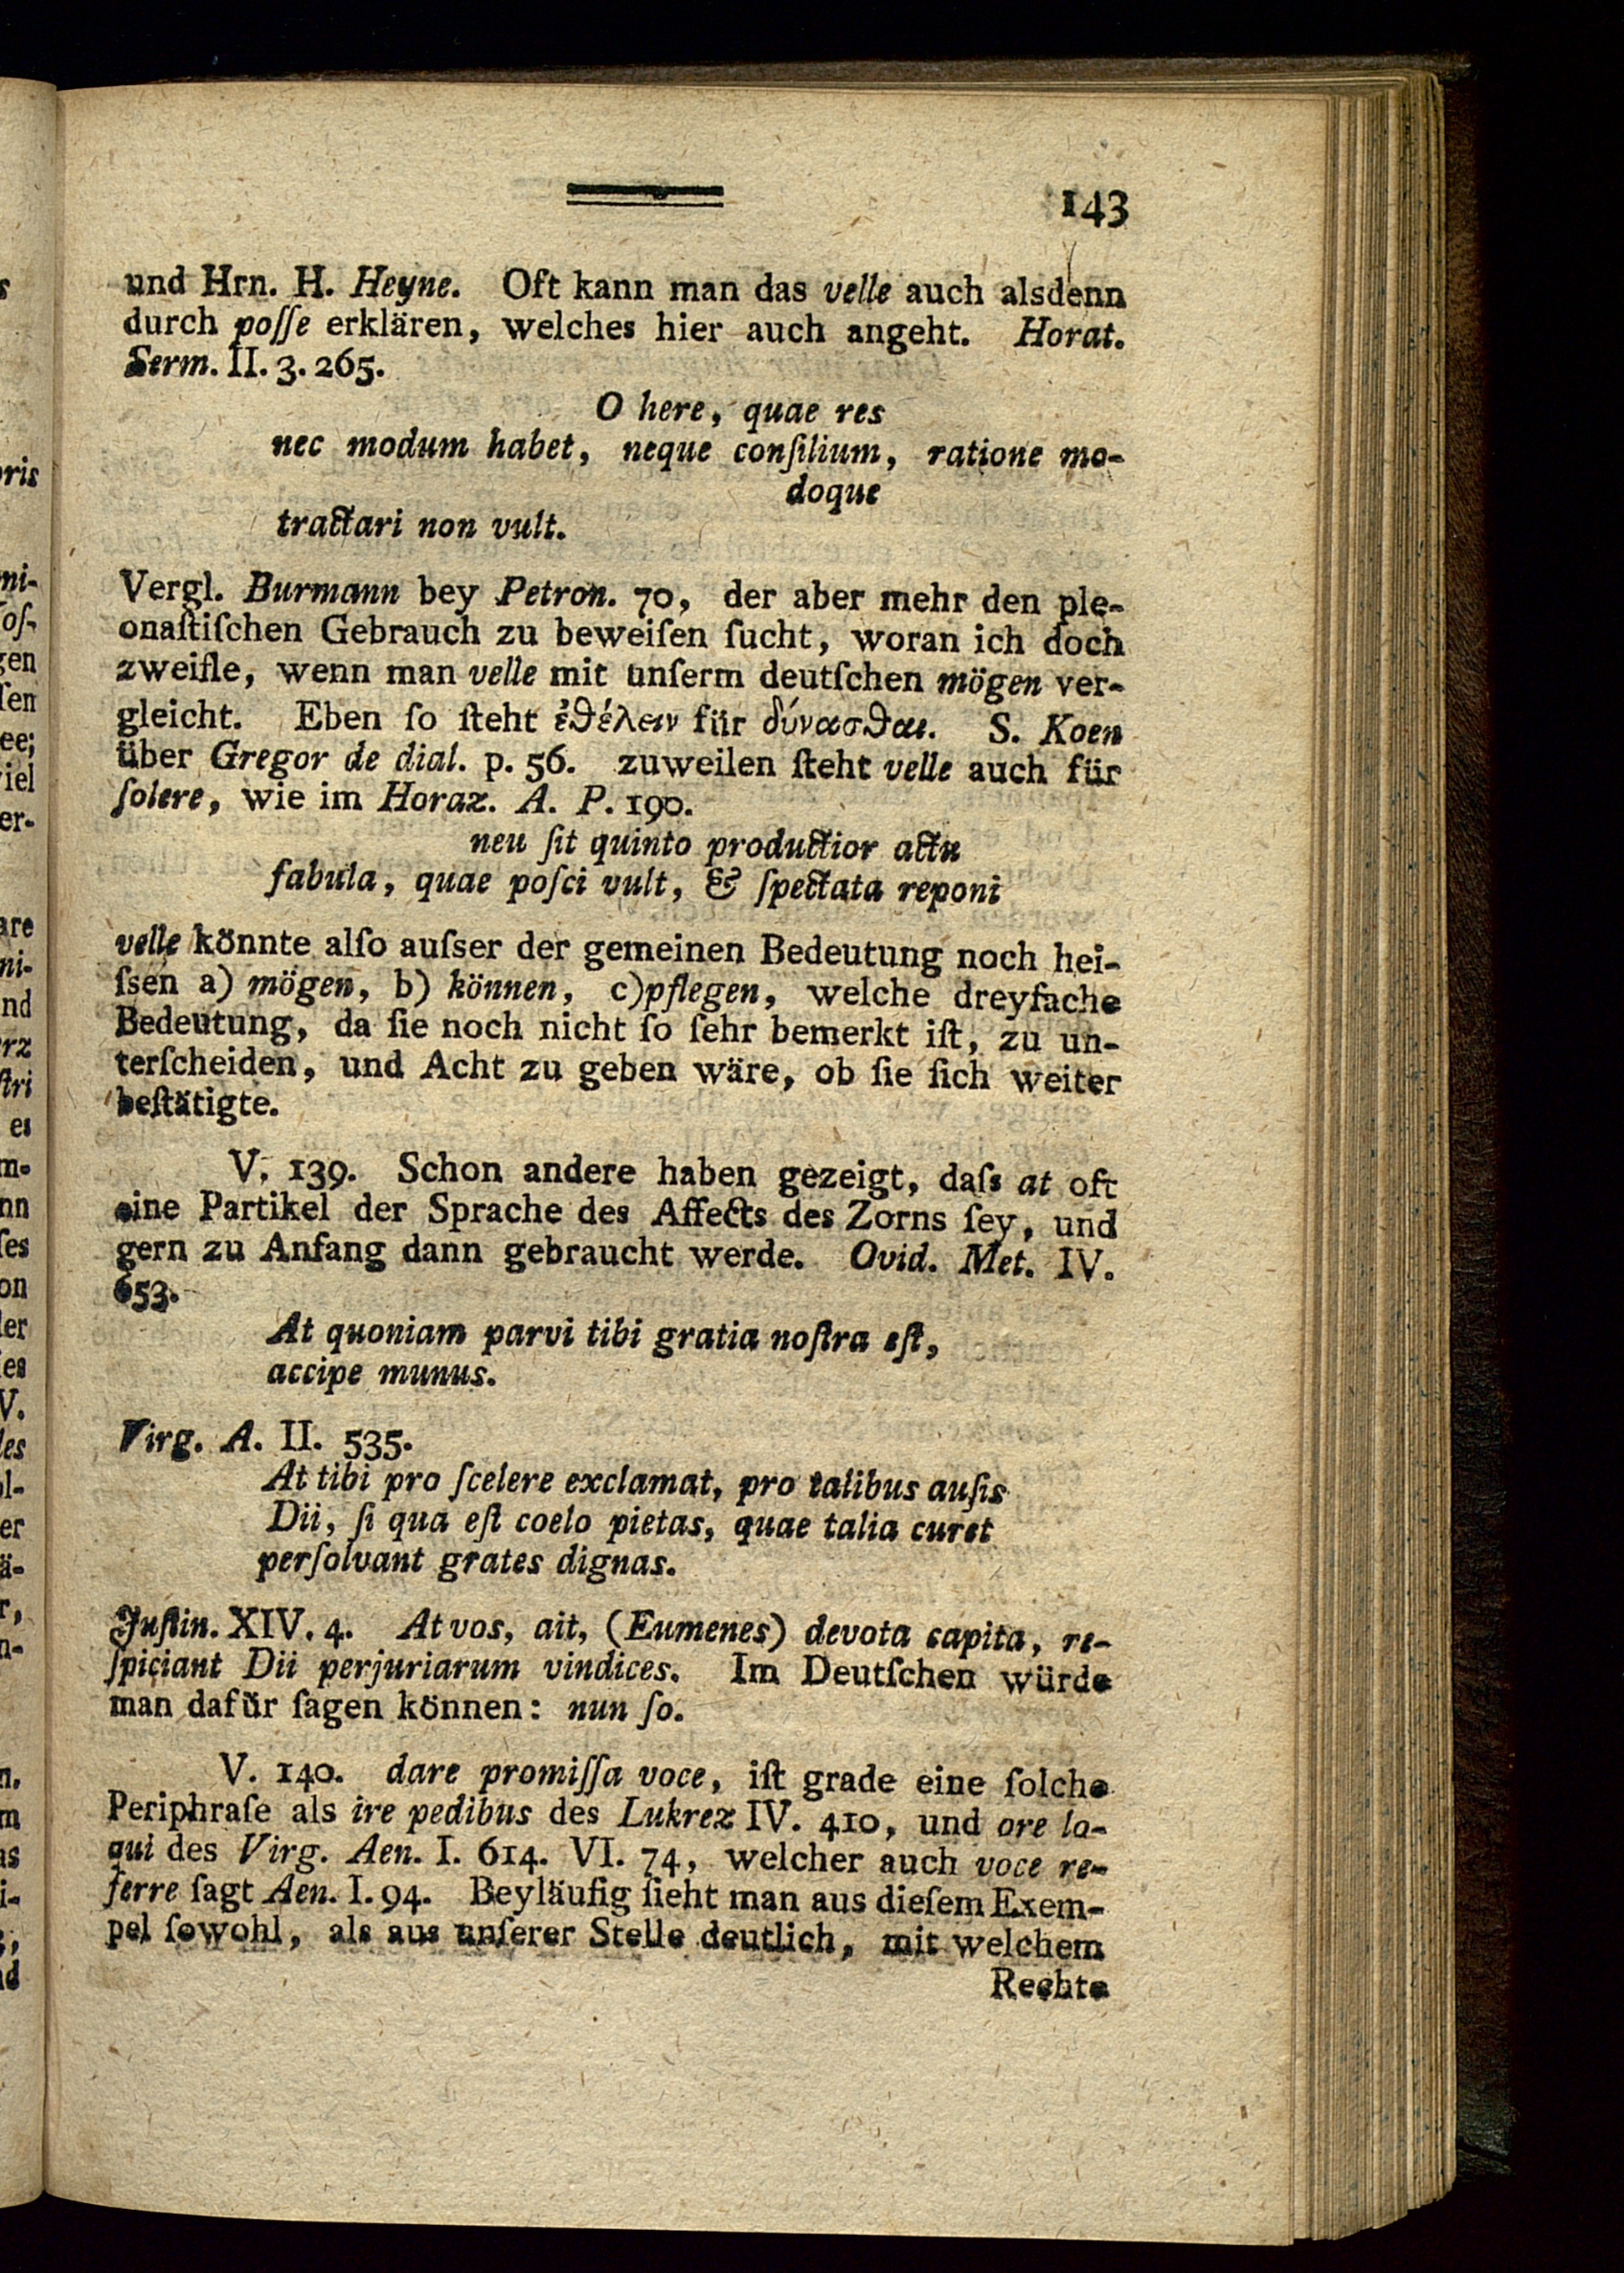 143
und Hrn. H. Heyne. Oft kann man das velle auch alsdenn
durch poſſe erklären, welches hier auch angeht. Horat.
Serm. II. 3. 265.
O here, quae res
nec modum habet, neque conſilium, ratione mo-
doque
tractari non vult.
Vergl. Burmann bey Petron. 70, der aber mehr den ple-
onaſtiſchen Gebrauch zu beweiſen ſucht, woran ich doch
zweifle, wenn man velle mit unſerm deutſchen mögen ver-
gleicht. Eben ſo ſteht ἐθέλειν für δύνασθαι. S. Koen
über Gregor de dial. p. 56. zuweilen ſteht velle auch für
ſolere, wie im Horaz. A. P. 190.
neu ſit quinto productior actu
fabula, quae poſci vult, & ſpectata reponi
velle könnte alſo auſser der gemeinen Bedeutung noch hei-
ſsen a) mögen, b) können, c)pflegen, welche dreyfache
Bedeutung, da ſie noch nicht ſo ſehr bemerkt iſt, zu un-
terſcheiden, und Acht zu geben wäre, ob ſie ſich weiter
beſtätigte.
V. 139. Schon andere haben gezeigt, daſs at oft
eine Partikel der Sprache des Affects des Zorns ſey, und
gern zu Anfang dann gebraucht werde. Ovid. Met. IV.
653.
At quoniam parvi tibi gratia noſtra eſt,
accipe munus.
Virg. A. II. 535.
At tibi pro ſcelere exclamat, pro talibus auſis
Dii, ſi qua eſt coelo pietas, quae talia curet
perſolvant grates dignas.
Juſtin. XIV. 4. At vos, ait, (Eumenes) devota capita, re-
ſpiciant Dii perjuriarum vindices. Im Deutſchen würde
man dafür ſagen können: nun ſo.
V. 140. dare promiſſa voce, iſt grade eine ſolche
Periphraſe als ire pedibus des Lukrez IV. 410, und ore lo-
qui des Virg. Aen. I. 614. VI. 74, welcher auch voce re-
ferre ſagt Aen. I. 94. Beyläufig ſieht man aus dieſem Exem-
pel ſowohl, als aus unſerer Stelle deutlich, mit welchem
Rechte